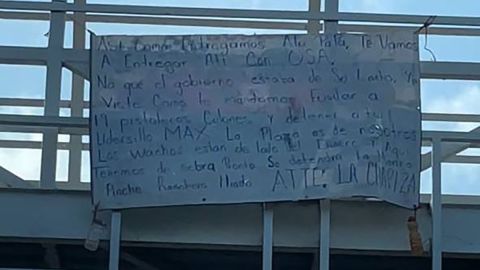 Así Como Entregamos A tu Papá, Te Vamos
A Entregar A ti Con USA.
No que el gobierno estaba de Su Lado, Ya
Viste Como te mandamos Fusilar a
19 pistoleros Culones y detener a tu
Lidersillo MAX. La Plaza es de nosotros
Los Wachos estan de lado del Dinero y Aqui
Tenemos de sobra Pronto Se
Pinche Ranchero ATTE: LA CHAPIZA